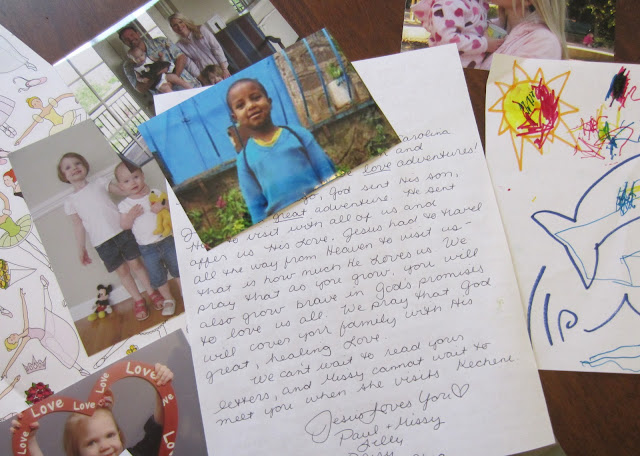 Carolina
and
love adventures!
, God sent His son,
great adventure. He sent
to visit with all of us and
offer us His Love. Jesus had to travel
all the way from Heaven to visit us-
that is how much He Loves us. We
pray that as you grow, you will
also grow brave in God's promises
to love us all. We pray that God
will cover your family with His
great, healing Love.
We can't wait to read your
letters, and Missy cannot wait to
meet you when she visits Kechene.
Jesus Loves You♡
Paul + Missy
Lilly
Love Love Love Love Love Love